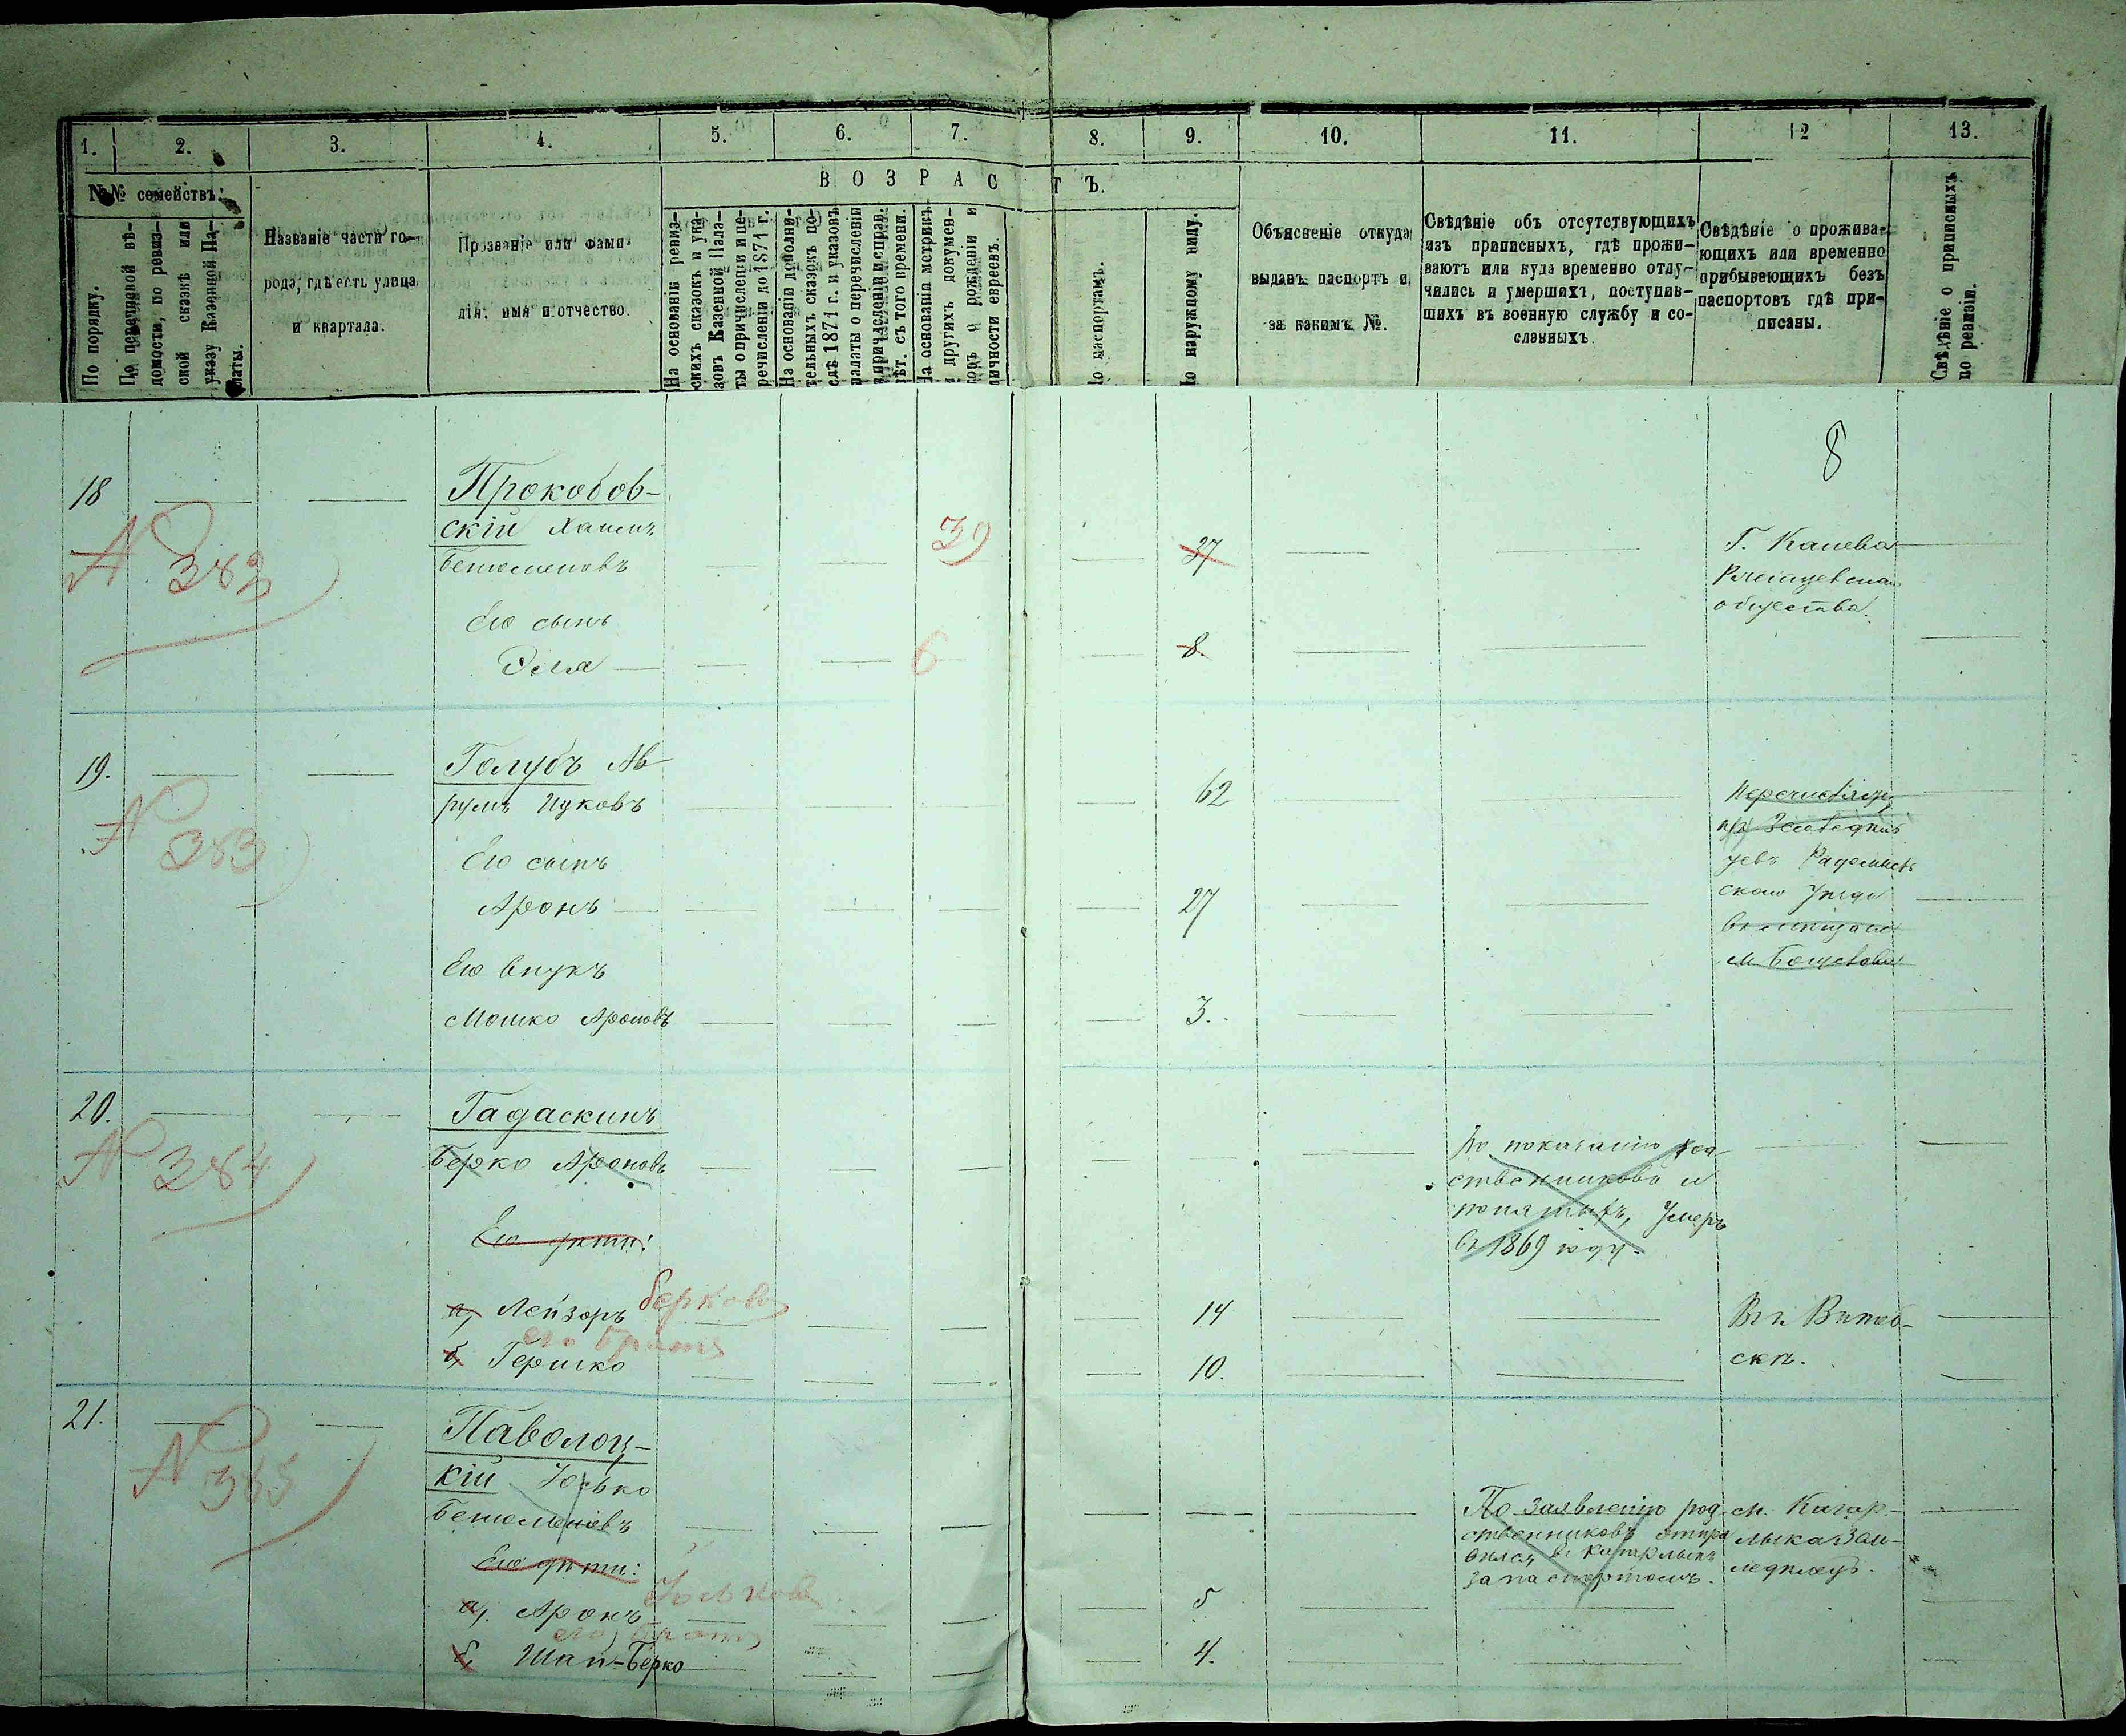 1. 2. 3. 4. 5. 6. 7. 8. 9. 10. 11. 12 13.
№№ семействъ.
По порядку.
По перечневой вѣ-
домости, по ревиз-
ской сказкѣ или
указу Казенной Па-
латы.
Названіе части го-
рода, гдѣ есть улица
и квартала.
Прозваніе или фами-
лія, имя и отчество.
ВОЗРАСТЪ.
На основаніи ревиз-
скихъ сказокъ и ука-
зовъ Казенной Пала-
ты о причисленіи и пе-
речисленіи до 1871 г.
На основаніи дополни-
тельныхъ сказокъ по-
слѣ 1871 г. и указовъ
палаты о перечисленіи
и причисленіи и справ.
лѣт. съ того времени.
На основаніи метрикъ
и другихъ докумен-
товъ о рожденіи и
личности евреевъ.
По паспортамъ.
По наружному виду.
Объясненіе откуда
выданъ паспортъ и
за какимъ №.
Свѣдѣніе объ отсутствующихъ
изъ приписныхъ, гдѣ прожи-
ваютъ или куда временно отлу-
чились и умершихъ, поступив-
шихъ въ военную службу и со-
сланныхъ.
Свѣдѣніе о прожива-
ющихъ или временно
прибывающихъ безъ
паспортовъ гдѣ при-
писаны.
Свѣдѣніе о приписныхъ
по ревизіи.
8
18
Прокобов-
скій Хаимъ
Бенюминовъ
39
37
Г. Канева
общества.
N 382
Его сынъ
Эля
6
8.
19.
Голубъ Ав-
румъ Ицковъ
62
N 383
Его сынъ
Аронъ
27
Его внукъ
Мошко Ароновъ
3.
скаго Уѣзда
20.
Гадаскинъ
Берко Ароновъ
N 384
По показанію род-
ственниковъ и
понятыхъ, Умеръ
въ 1869 году.
Его дѣти:
а, Лейзоръ Берковъ
14
его братъ
б, Гершко
10.
Въ г. Витеб-
скѣ.
21.
Паволоц-
кій Юсько
Бенюминовъ
N 385
По заявленію род-
ственниковъ отпра
вился въ Кагарлыкъ
за паспортомъ.
м. Кагар-
лыка Зем-
Его дѣти:
а, Аронъ Юськовъ
5
его братъ
б, Шап-Берко
4.